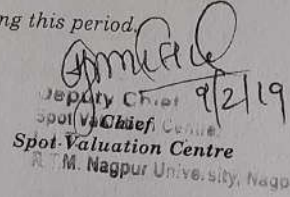 ng this period.
9/2/19
Deputy Chief
Spot Valuation Centre
Chief
Spot-Valuation Centre
R. T. M. Nagpur University, Nagp